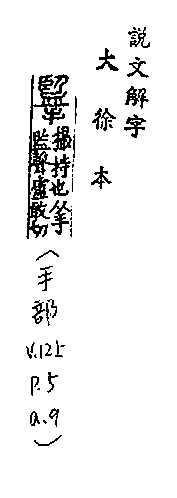 說文解字
大徐本
擥
撮持也从手
監聲盧敢切
(手部
v.12上
p.5
a.9)